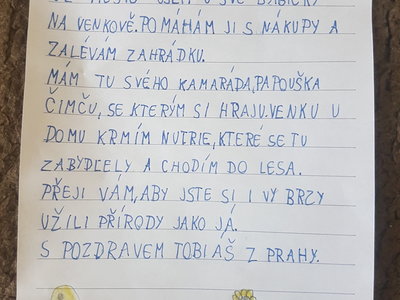 U SVÉ BABIČKY
NA VENKOVĚ. POMÁHÁM JI S NÁKUPY A
ZALÉVÁM ZAHRÁDKU.
MÁM TU SVÉHO KAMARÁDA, PAPOUŠKA
ČIMČU, SE KTERÝM SI HRAJU. VENKU U
DOMU KRMÍM NUTRIE, KTERÉ SE TU
ZABYDLELY A CHODÍM DO LESA.
PŘEJI VÁM, ABY JSTE SI I VY BRZY
UŽILI PŘÍRODY JAKO JÁ.
S POZDRAVEM TOBIÁŠ Z PRAHY.